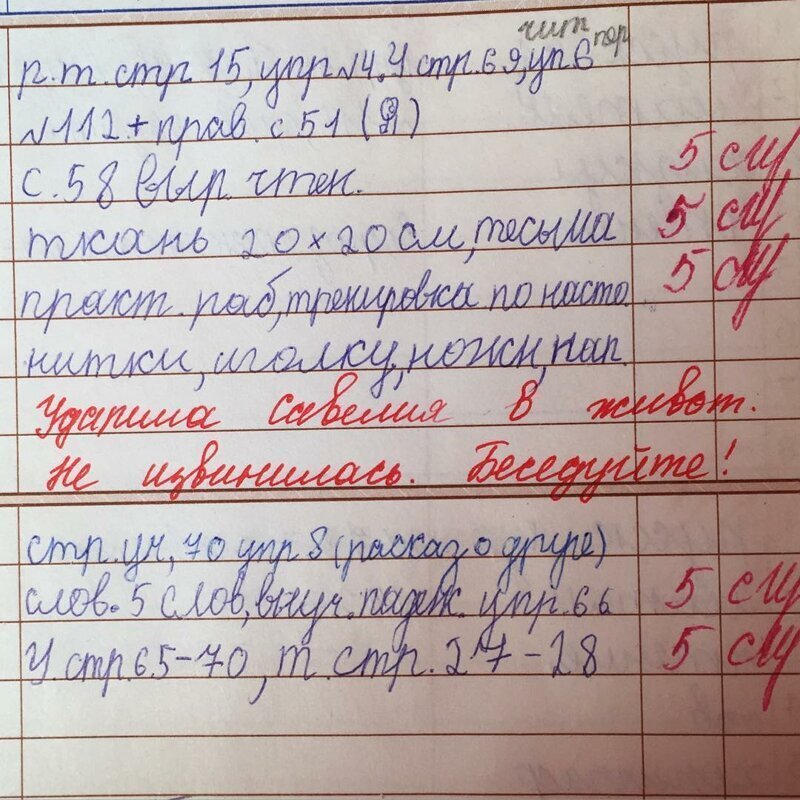 чит пер
р.т. стр 15, упр №4. У стр.69, уп6
№112 + прав. с 51 (Я)
с.58 выр. чтен. 5
ткань 20×20 см, тесьма 5
практ. раб, тренировка по насто. 5
нитки, иголку, ножн, нап.
Ударила Савелия в живот.
Не извинилась. Беседуйте!
стр. уч, 70 упр 8 (расказ о друге)
слов. 5 слов, выуч. падеж. упр. 66 5
У. стр. 65-70, т. стр. 27-28 5